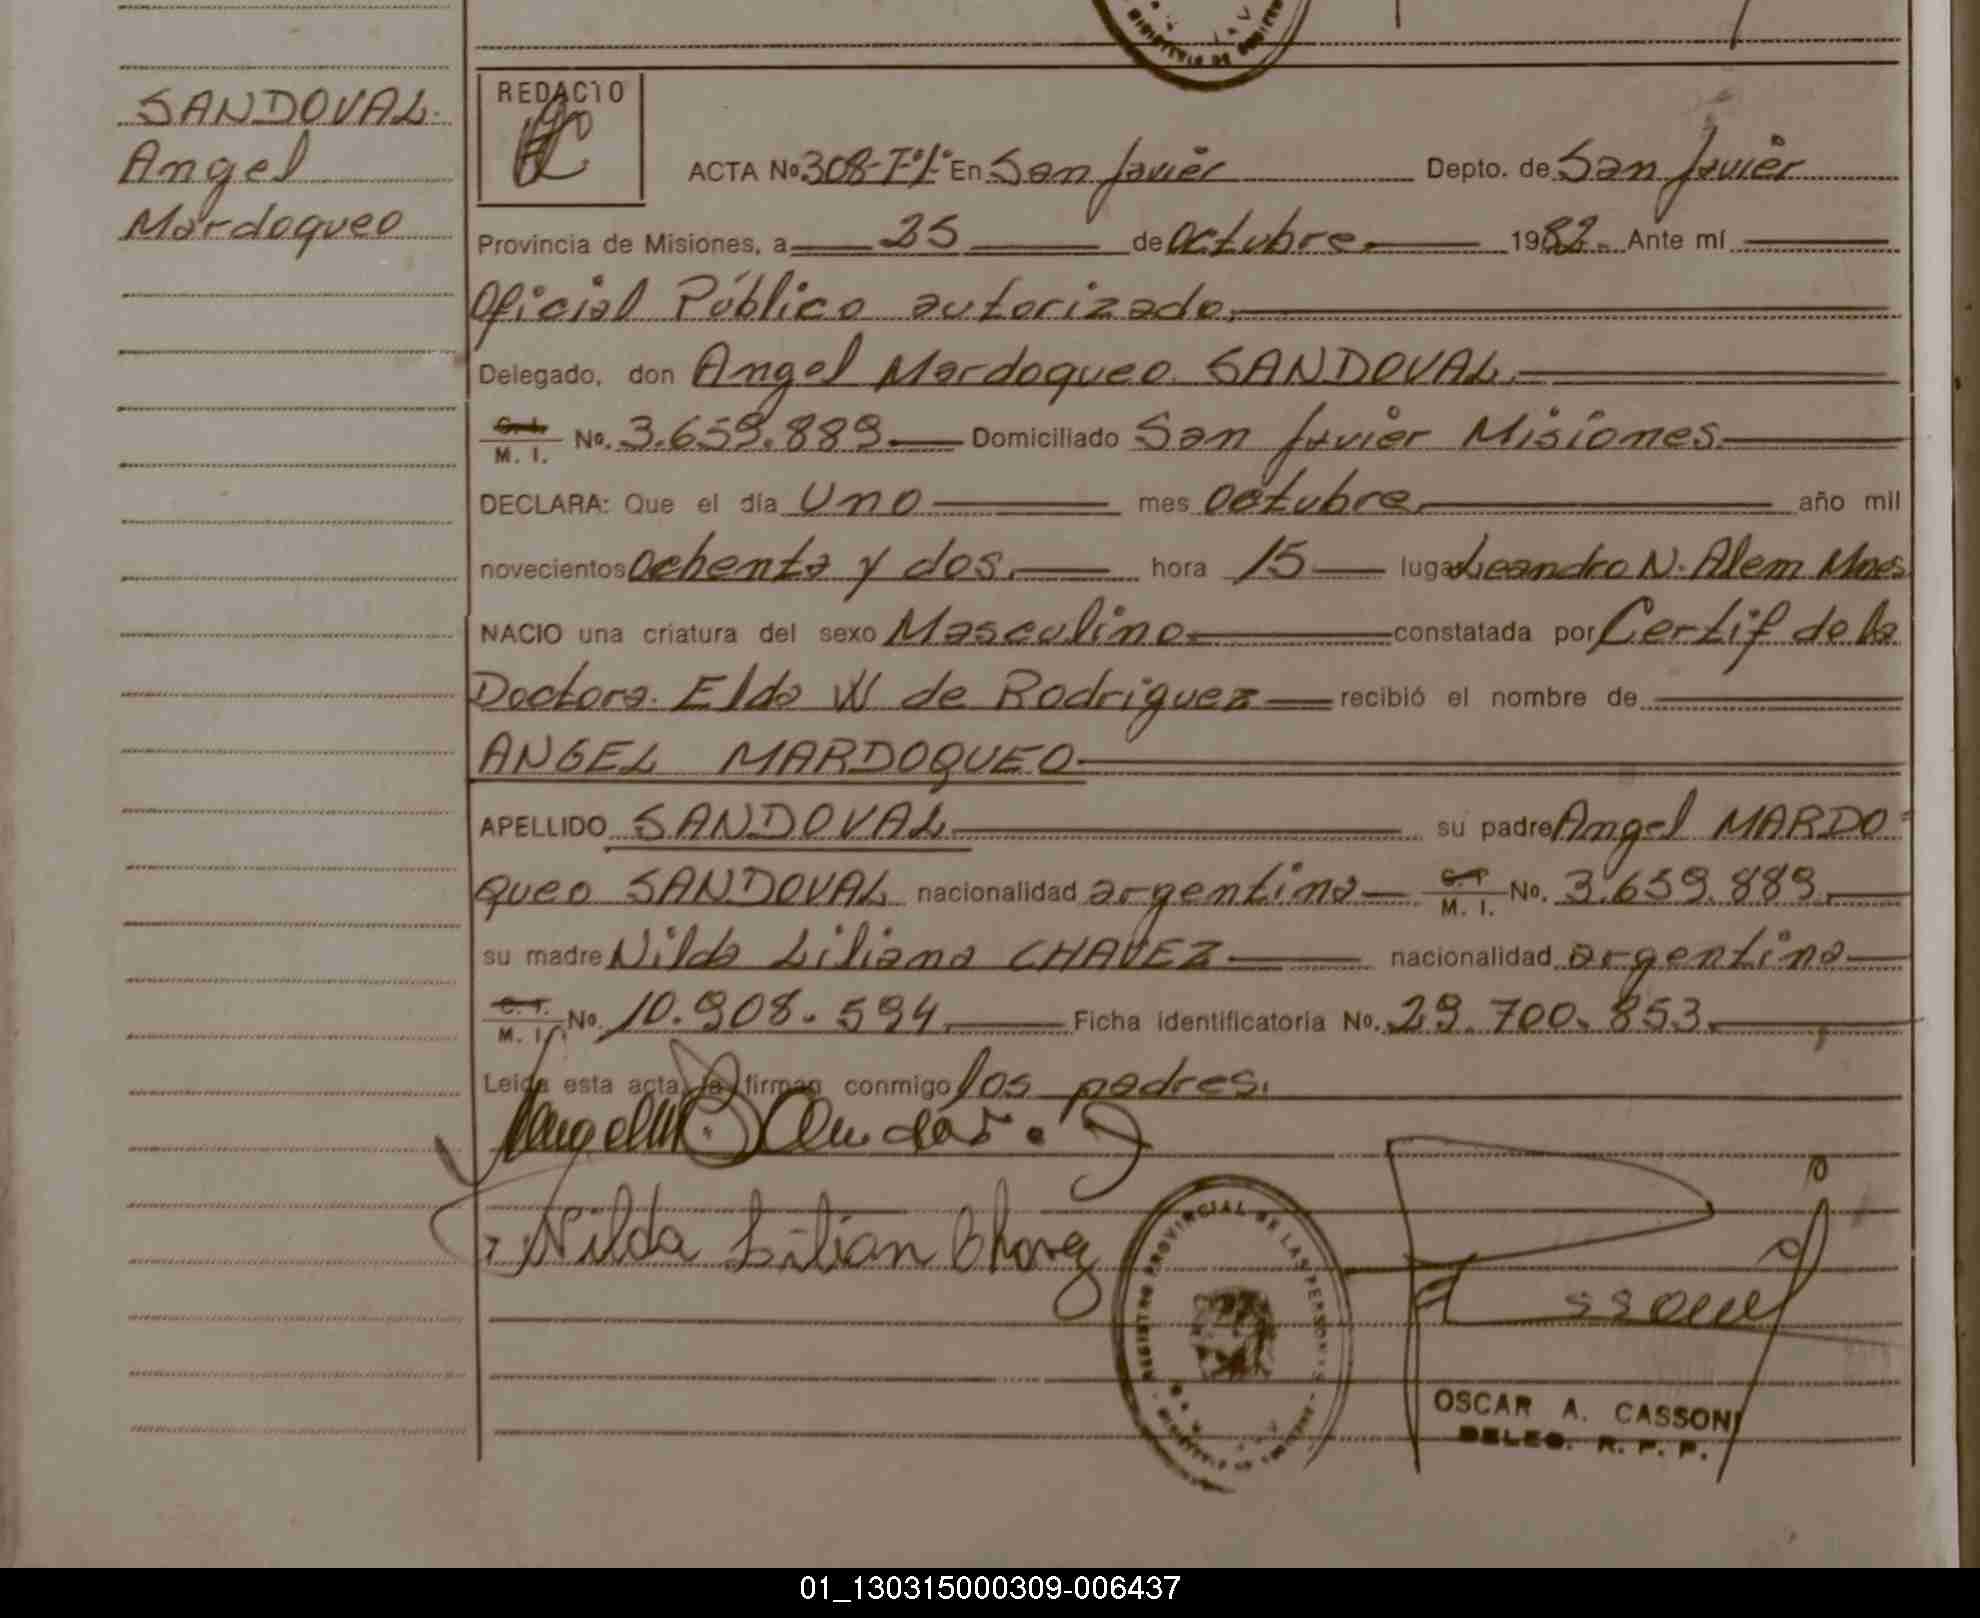 SANDOVAL.
Angel
Mardoqueo
REDACTO
ACTA No 308-Tº1º En San Javier Depto. de San Javier
Provincia de Misiones, a 25 de Octubre 1982. Ante mí
Oficial Público autorizado.
Delegado, don Angel Mardoqueo SANDOVAL.
C. I. M. I. No. 3.659.889. Domiciliado San Javier Misiones.
DECLARA: Que el día Uno mes Octubre año mil
novecientos Ochenta y dos. hora 15 lugar Leandro N. Alem Mnes
NACIO una criatura del sexo Masculino constatada por Certif de la
Doctora. Elda W de Rodriguez recibió el nombre de
ANGEL MARDOQUEO
APELLIDO SANDOVAL su padre Angel MARDO=
queo SANDOVAL nacionalidad argentina M. I. No. 3.659.889.
su madre Nilda Liliana CHAVEZ nacionalidad argentina
M. I. No. 10.908.594. Ficha identificatoria No. 29.700.853.
Leida esta acta, la firman conmigo los padres.
Nilda Lilian Chavez
REGISTRO PROVINCIAL DE LAS PERSONAS
OSCAR A. CASSONI
DELEG. R. P. P.
01_130315000309-006437